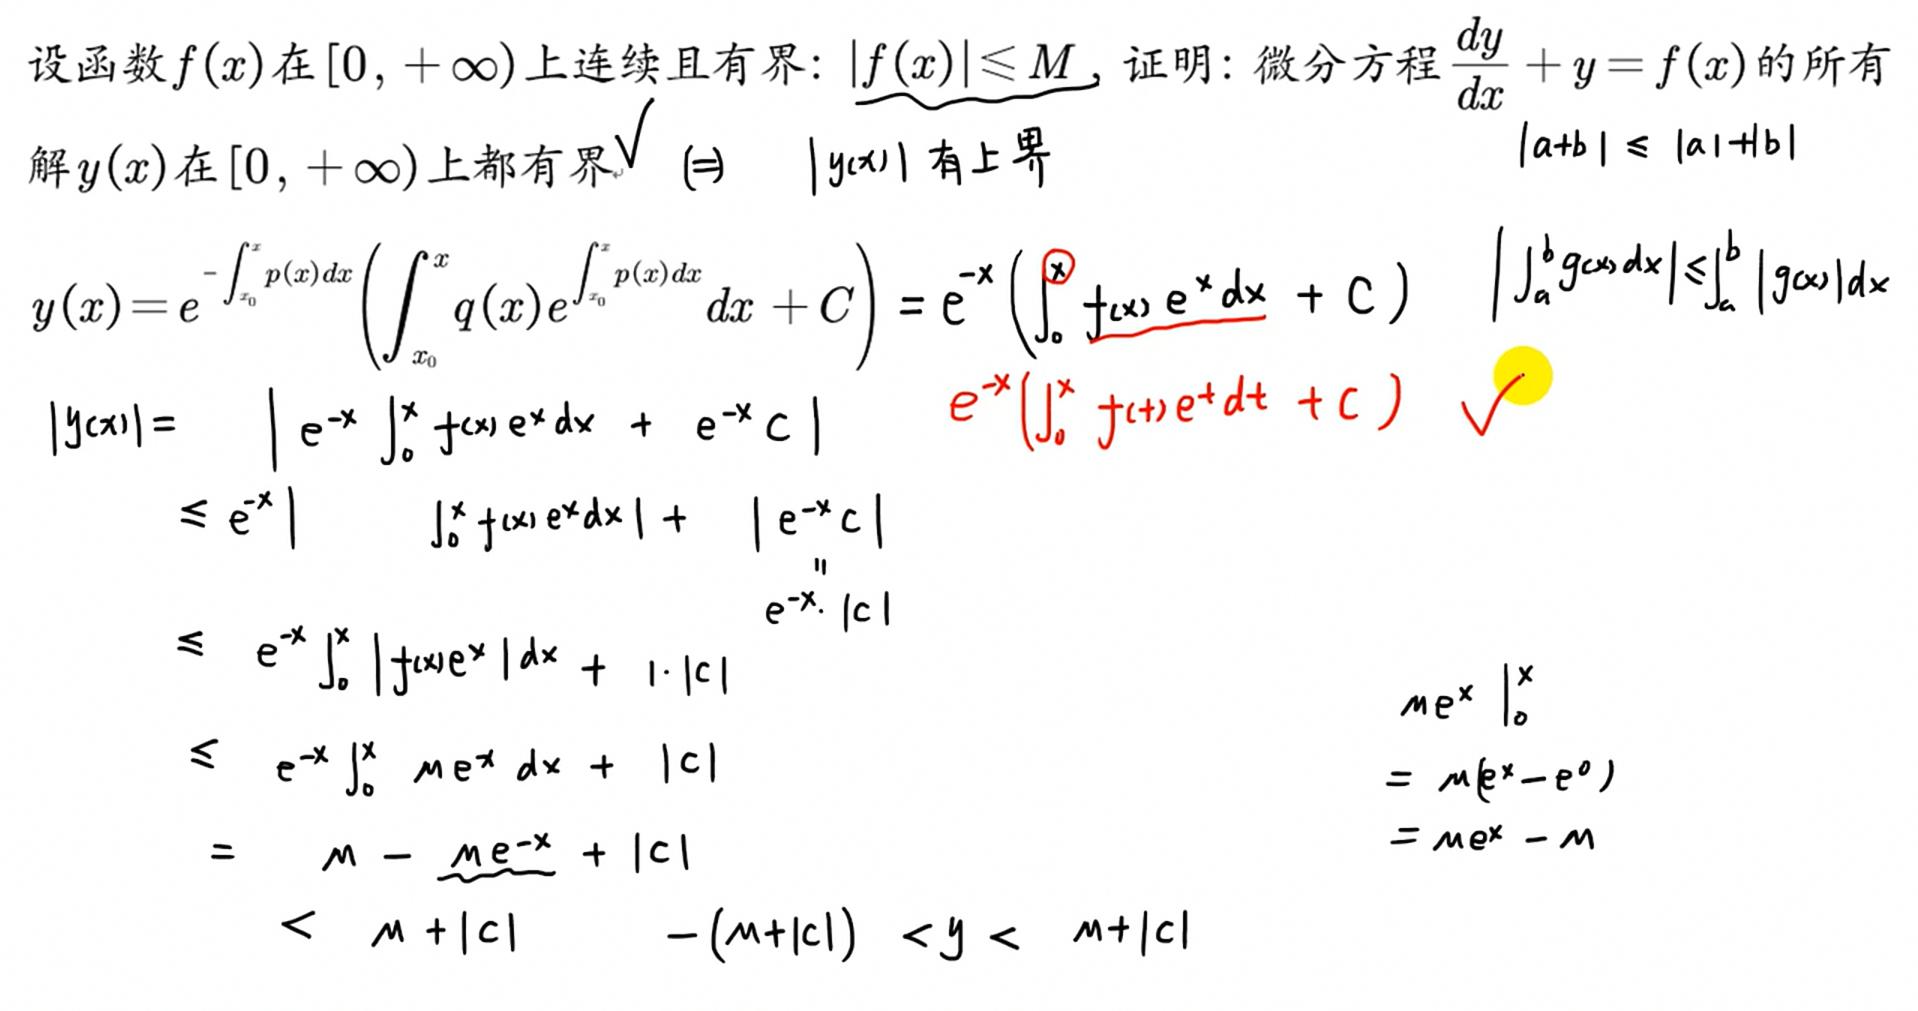 设函数f(x)在[0, +∞)上连续且有界: |f(x)|≤M, 证明: 微分方程dy/dx + y = f(x)的所有
解y(x)在[0, +∞)上都有界 ✓ (⇒ |y(x)| 有上界
|a+b| ≤ |a|+|b|
y(x) = e^{-∫_{x_0}^{x} p(x)dx} (∫_{x_0}^{x} q(x)e^{∫_{x_0}^{x} p(x)dx} dx + C) = e^{-x} (∫_0^x f(x) e^x dx + C)
|∫_a^b g(x)dx| ≤ ∫_a^b |g(x)|dx
e^{-x} (∫_0^x f(t)e^t dt + C) ✓
|y(x)| = | e^{-x} ∫_0^x f(x) e^x dx + e^{-x} C |
≤ e^{-x} | ∫_0^x f(x) e^x dx | + | e^{-x} C |
"
e^{-x}. |C|
≤ e^{-x} ∫_0^x |f(x)e^x| dx + 1·|C|
≤ e^{-x} ∫_0^x M e^x dx + |C|
= M - M e^{-x} + |C|
< M + |C| -(M+|C|) < y < M+|C|
M e^x |_0^x
= M(e^x - e^0)
= M e^x - M